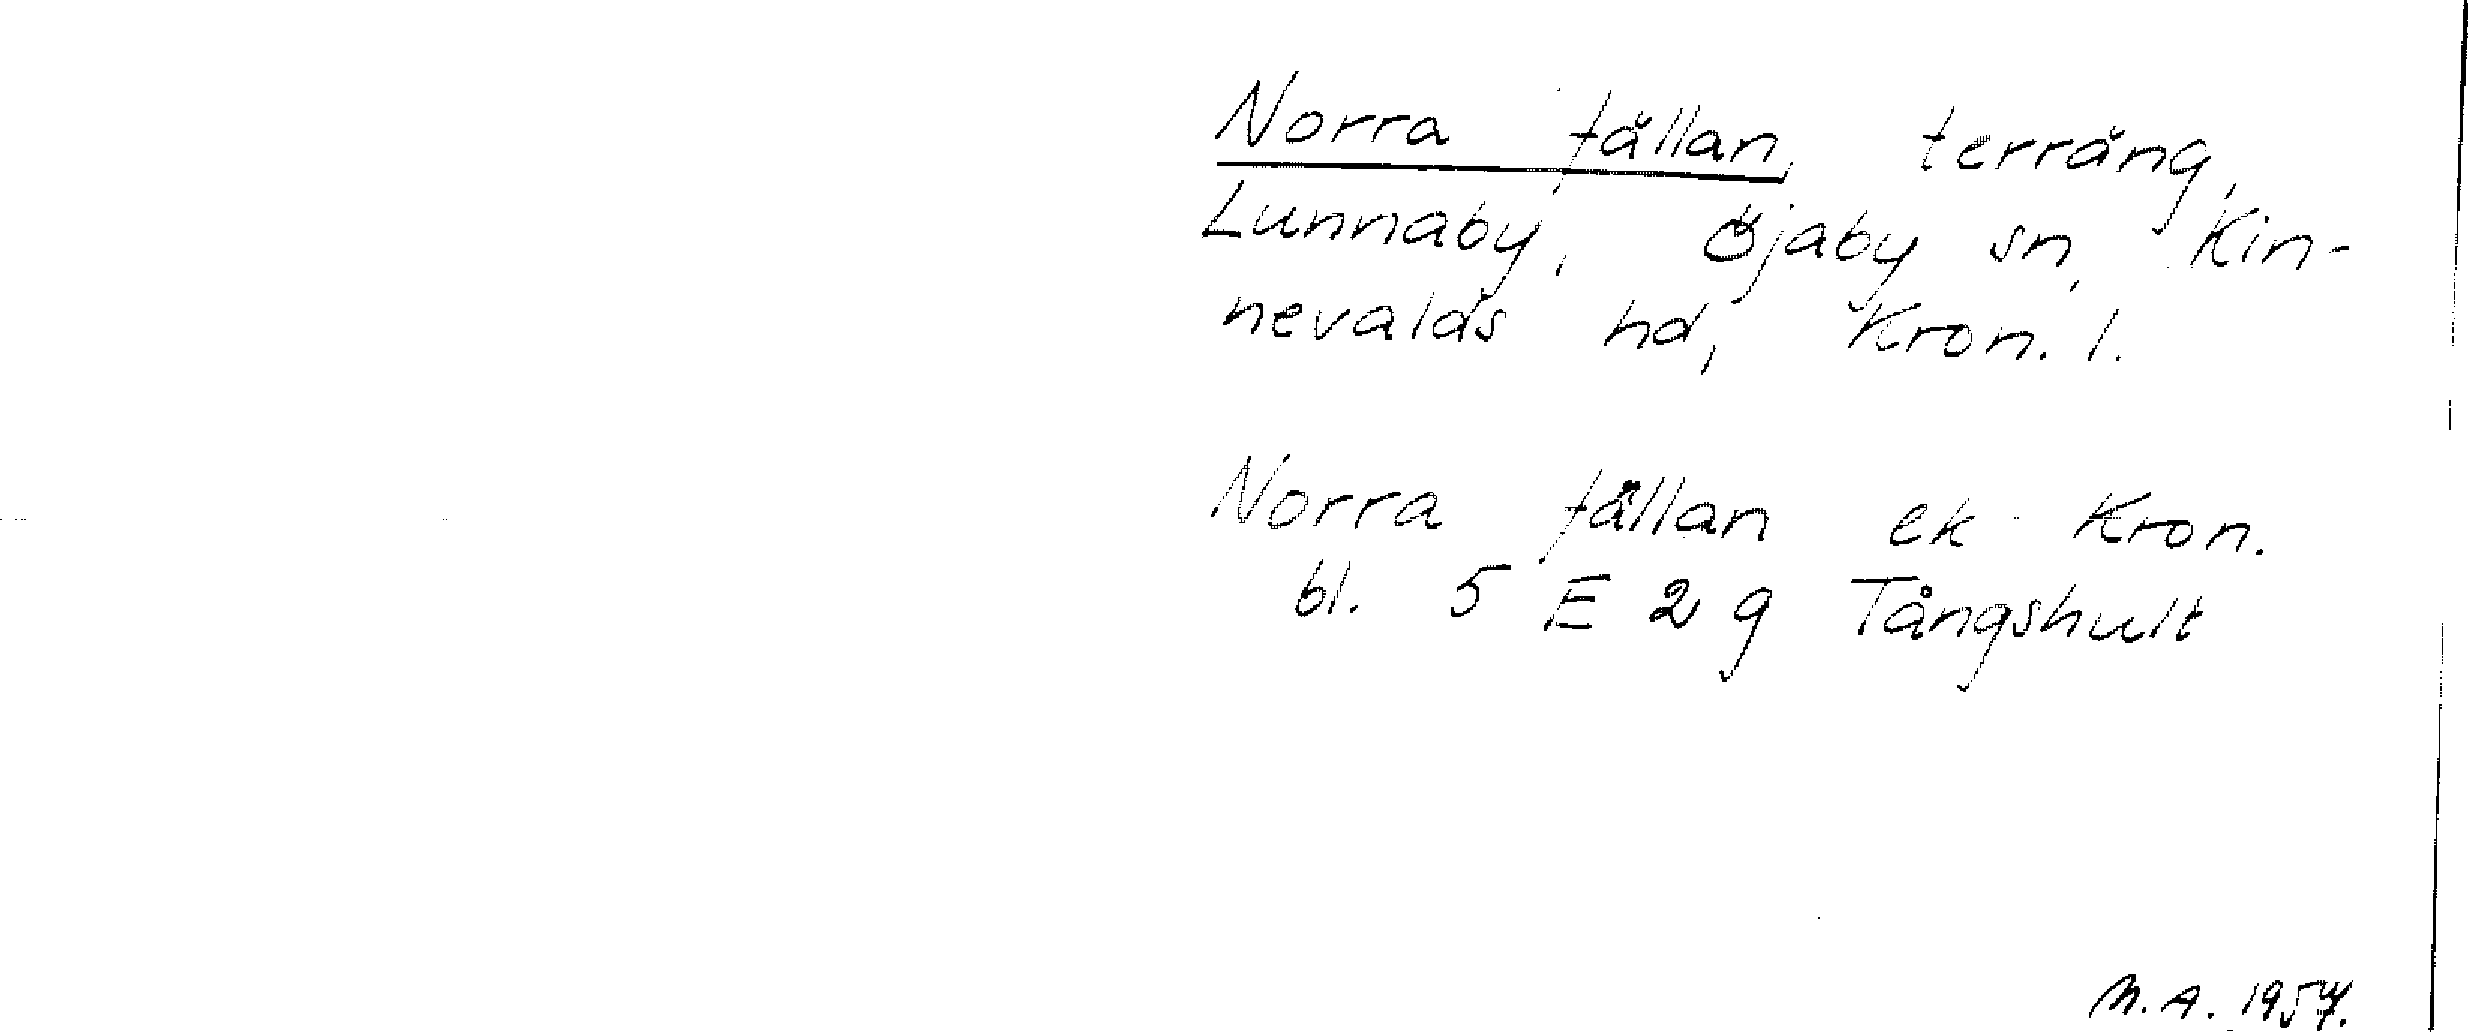 Norra fållan, terräng,
Lunnaby, Öjaby sn, Kin-
nevalds hd, Kron. l.
Norra fållan ek Kron.
bl. 5 E 2 g Tångshult
M.A. 1957.